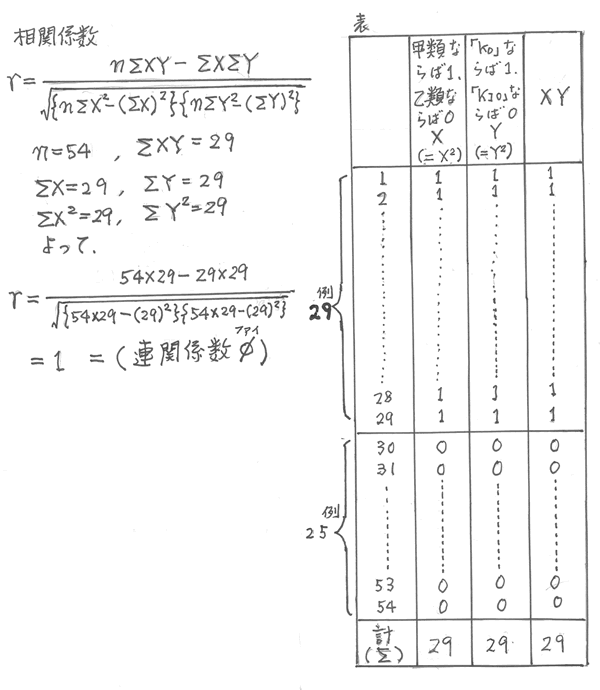 相関係数
r = nΣXY − ΣXΣY / √{nΣX²−(ΣX)²}{nΣY²−(ΣY)²}
n=54 , ΣXY=29
ΣX=29, ΣY=29
ΣX²=29, ΣY²=29
よって、
r = 54×29−29×29 / √{54×29−(29)²}{54×29−(29)²}
= 1 = (連関係数φ)
ファイ
表
甲類ならば1、乙類ならば0 X (=X²)
「K_D」ならば1.「KIO」ならば0 Y (=Y²)
XY
1 1 1 1
2 1 1 1
28 1 1 1
29 1 1 1
例
29
30 0 0 0
31 0 0 0
53 0 0 0
54 0 0 0
例
25
計(Σ) 29 29 29